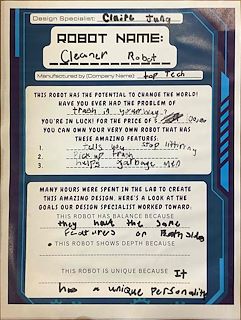 Design Specialist: Claire Jung
ROBOT NAME:
Cleaner Robot
Manufactured by (Company Name) top Tech
THIS ROBOT HAS THE POTENTIAL TO CHANGE THE WORLD!
HAVE YOU EVER HAD THE PROBLEM OF
trash in your way?
YOU'RE IN LUCK! FOR THE PRICE OF $
YOU CAN OWN YOUR VERY OWN ROBOT THAT HAS
THESE AMAZING FEATURES:
1. tells you stop littering
2. Pick up trash
3. helps garbage men
MANY HOURS WERE SPENT IN THE LAB TO CREATE
THIS AMAZING DESIGN. HERE'S A LOOK AT THE
GOALS OUR DESIGN SPECIALIST WORKED TOWARD:
THIS ROBOT HAS BALANCE BECAUSE
they have the same
features on both sides
THIS ROBOT SHOWS DEPTH BECAUSE
THIS ROBOT IS UNIQUE BECAUSE It
has a unique personality